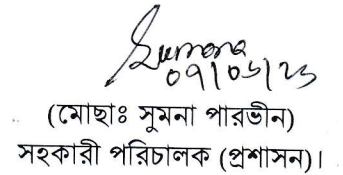 Sumona
09/05/23
(মোছাঃ সুমনা পারভীন)
সহকারী পরিচালক (প্রশাসন)।